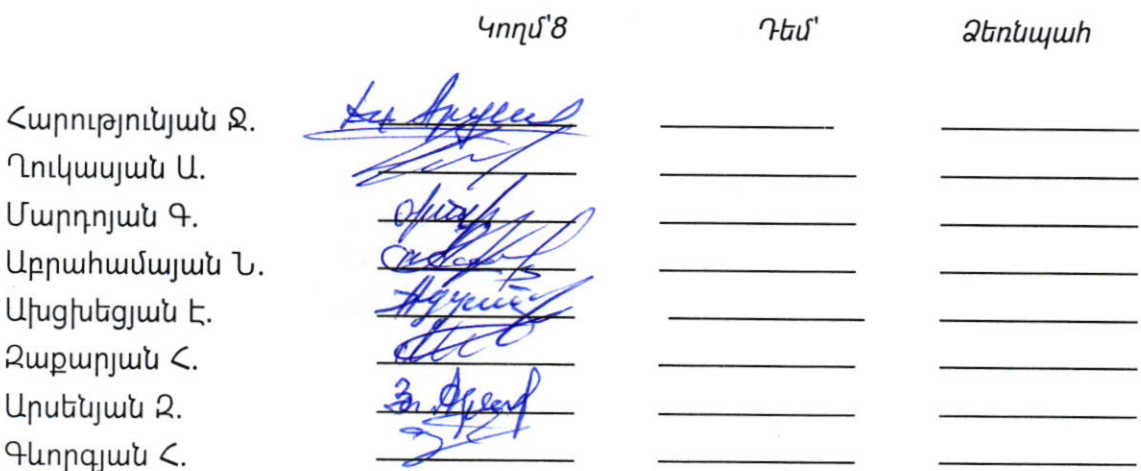 Կողմ՝8 Դեմ՝ Ձեռնպահ
Հարությունյան Ջ.
Ղուկասյան Ա.
Մարդոյան Գ.
Աբրահամայան Ն.
Ախցխեցյան Է.
Զաքարյան Հ.
Արսենյան Զ.
Գևորգյան Հ.